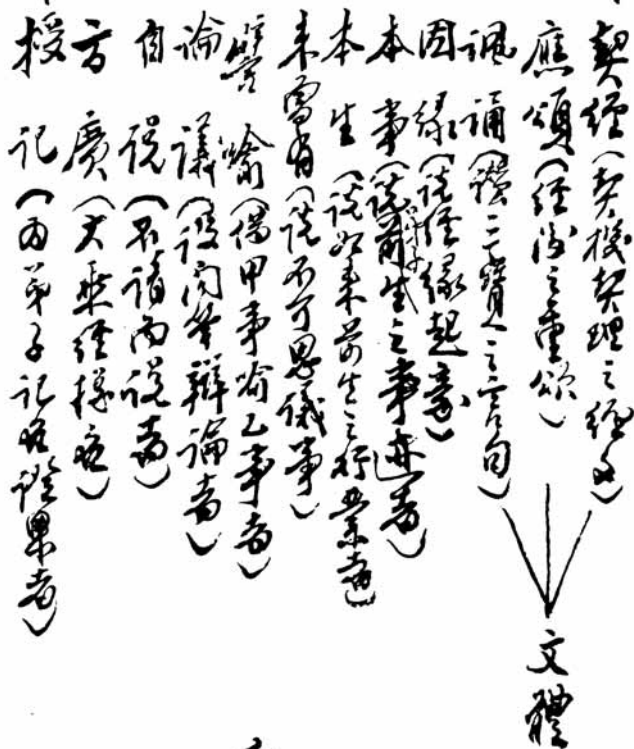 契經(契機契理之經文)
應頌(經後之重頌)
諷誦(讚三寶之言句)
因緣(說經緣起章)
本事(說弟子前生之事迹者)
本生(說如來前生之行業者)
未曾有(說不可思議事)
譬喻(借甲事喻乙事者)
論議(設問答辯論者)
自說(不請而說者)
方廣(大乘經操在)
授記(為弟子記在證果者)
文體